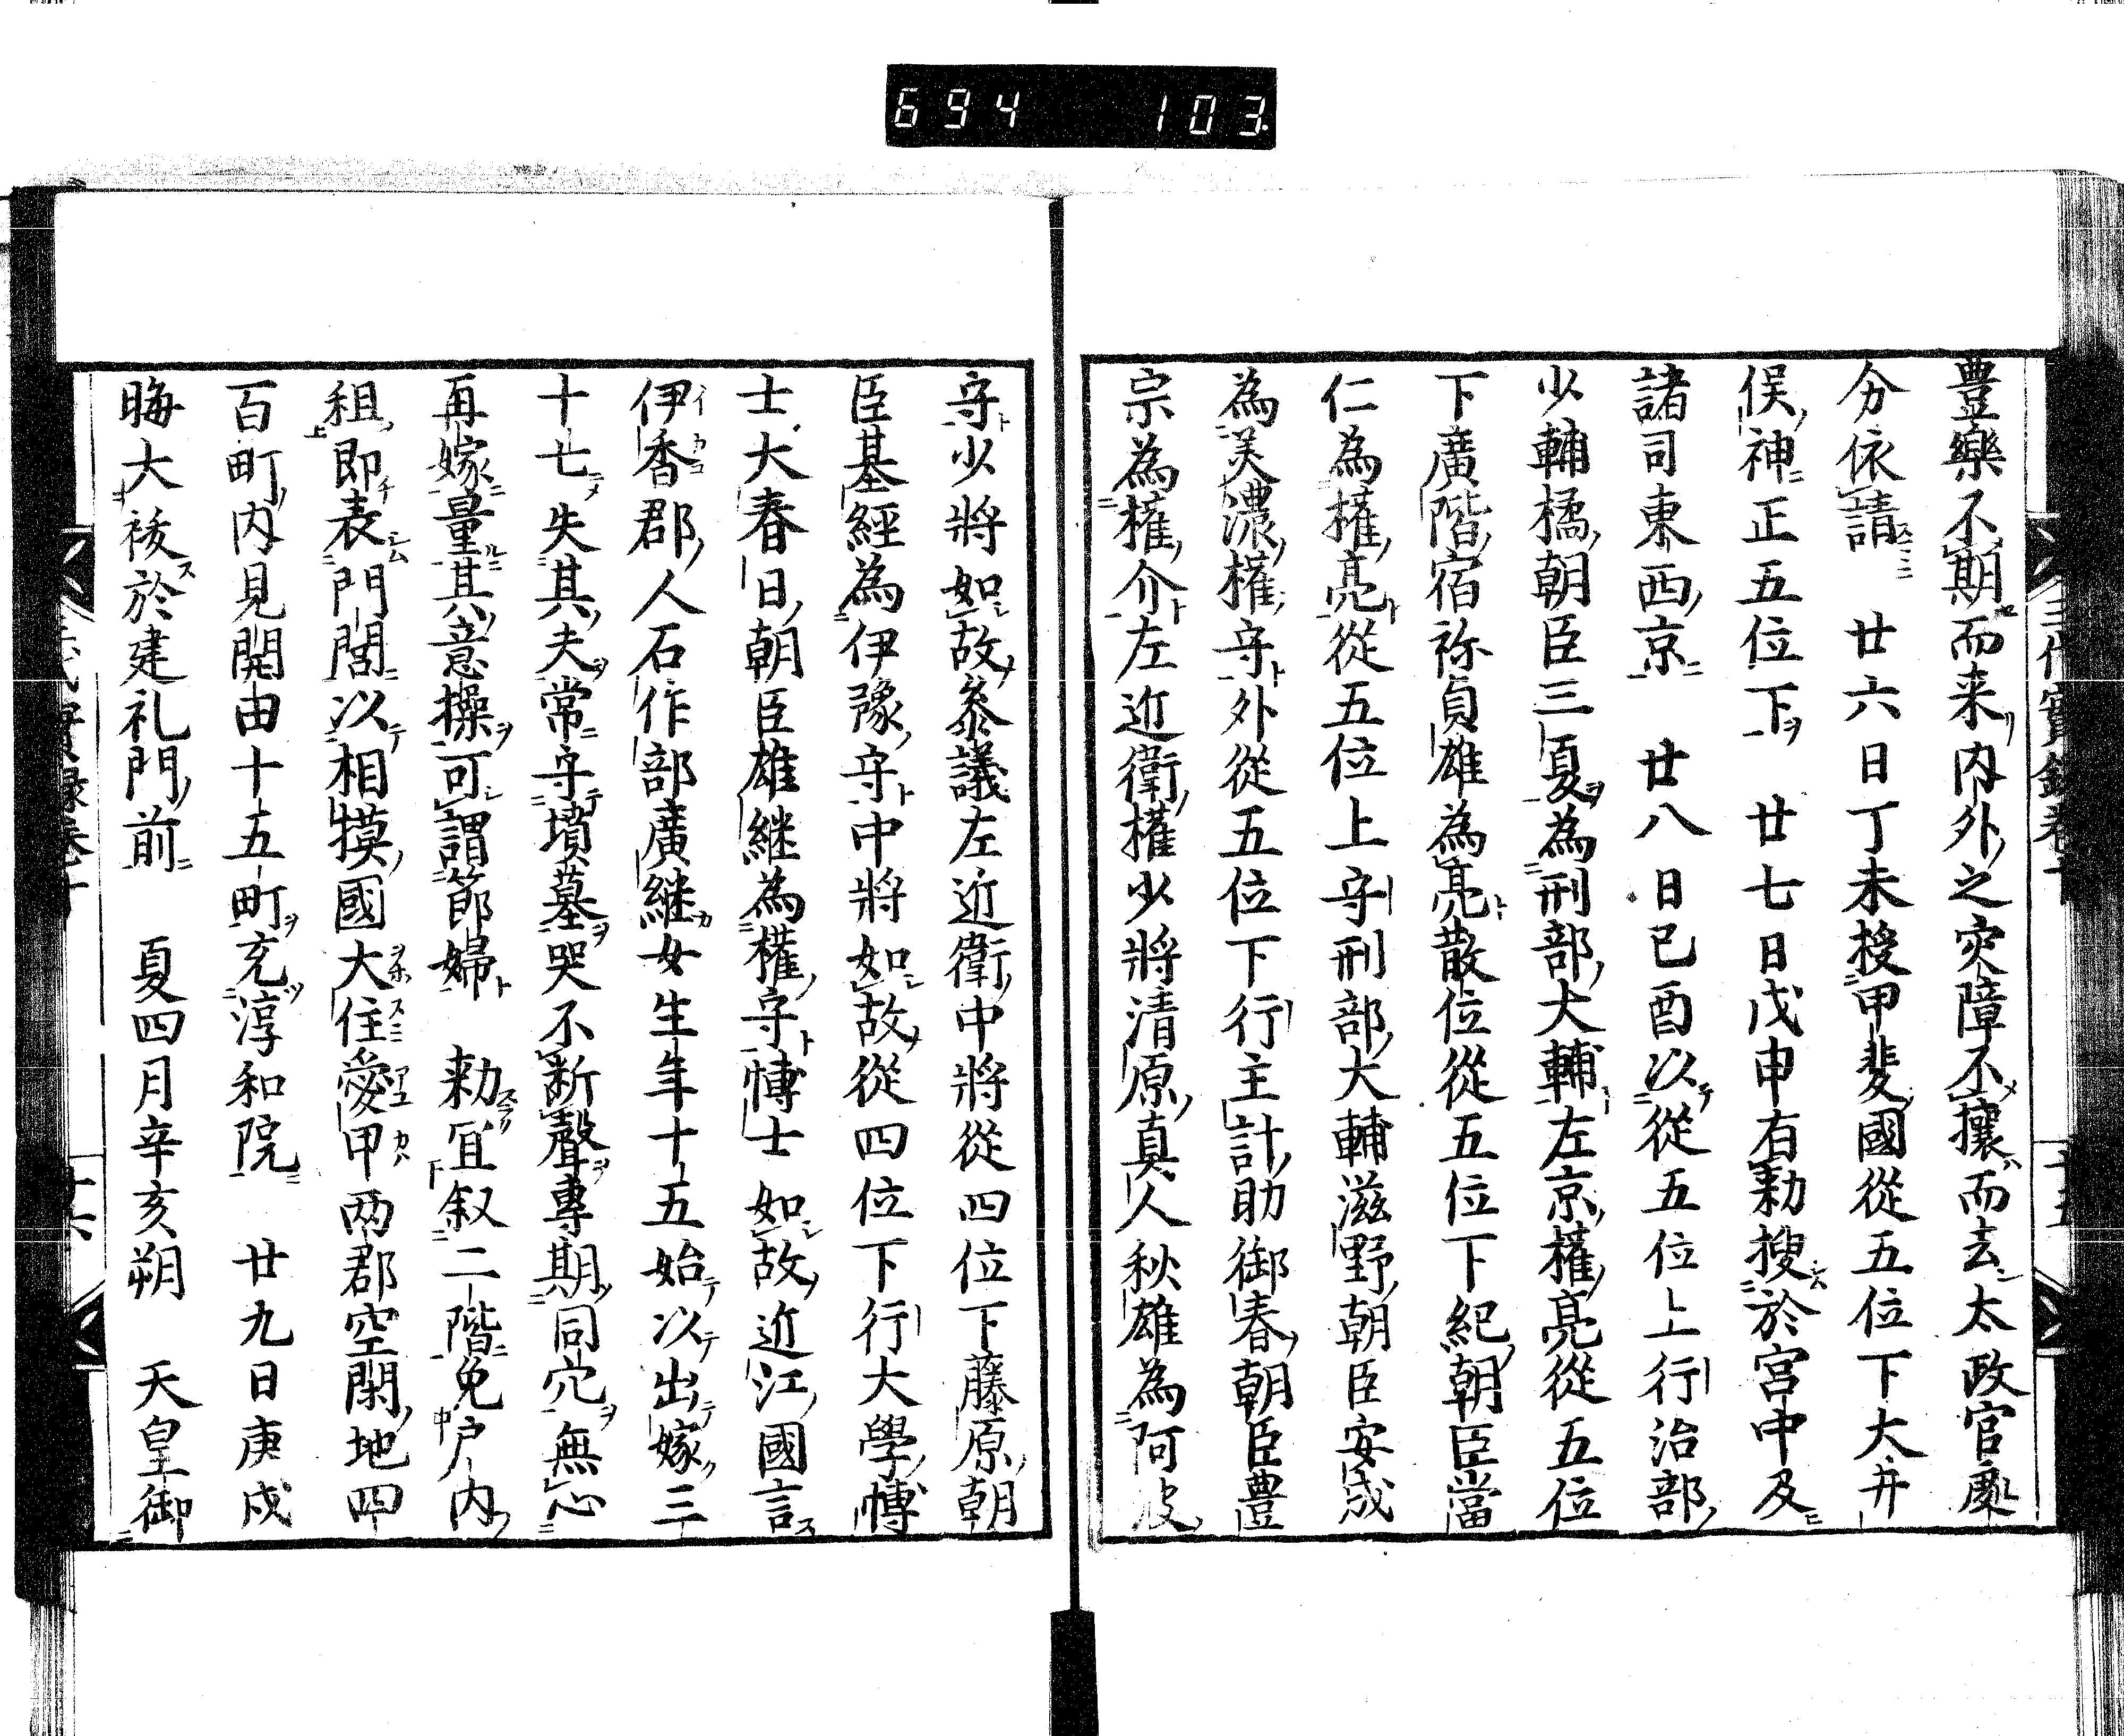 694 103
豊樂不期而来内外之灾障不攘而去太政官處
分依請　廿六日丁未授甲斐國從五位下大井
俣神正五位下　廿七日戊申有勅搜於宮中及
諸司東西京　廿八日己酉以從五位上行治部
少輔橘朝臣三夏為刑部大輔左京權亮從五位
下廣階宿祢貞雄為亮散位從五位下紀朝臣當
仁為權亮從五位上守刑部大輔滋野朝臣安成
為美濃權守外從五位下行主計助御春朝臣豊
宗為權介左近衛權少將清原真人秋雄為阿波
守少將如故叅議左近衛中將從四位下藤原朝
臣基經為伊豫守中將如故從四位下行大學博
士大春日朝臣雄継為權守博士如故近江國言
伊香郡人石作部廣継女生年十五始以出嫁三
十七失其夫常守墳墓哭不断聲專期同穴無心
再嫁量其意操可謂節婦　勅宜叙二階免户内
租即表門閭以相摸國大住愛甲两郡空閑地四
百町内見開由十五町充淳和院　廿九日庚戍
晦大祓於建礼門前　夏四月辛亥朔　天皇御